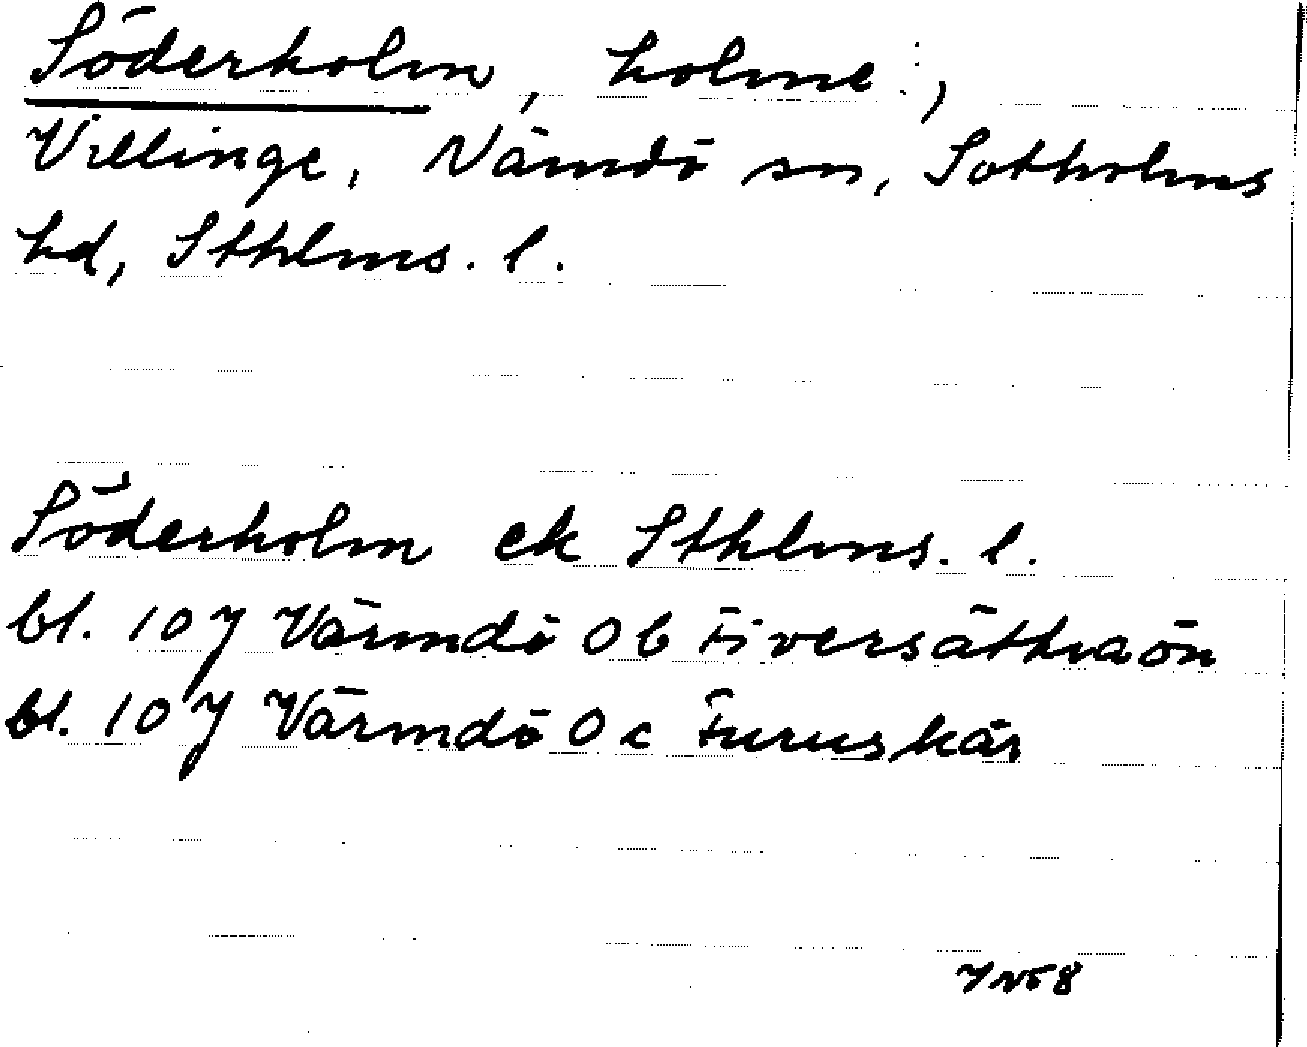 Söderholm, holme:,
Villinge, Nämdö sn, Sotholms
hd, Sthlms. l.
Söderholm ek Sthlms. l.
bl. 10 J Värmdö 0 b Fiversätraön
bl. 10 J Värmdö 0 c Furuskär